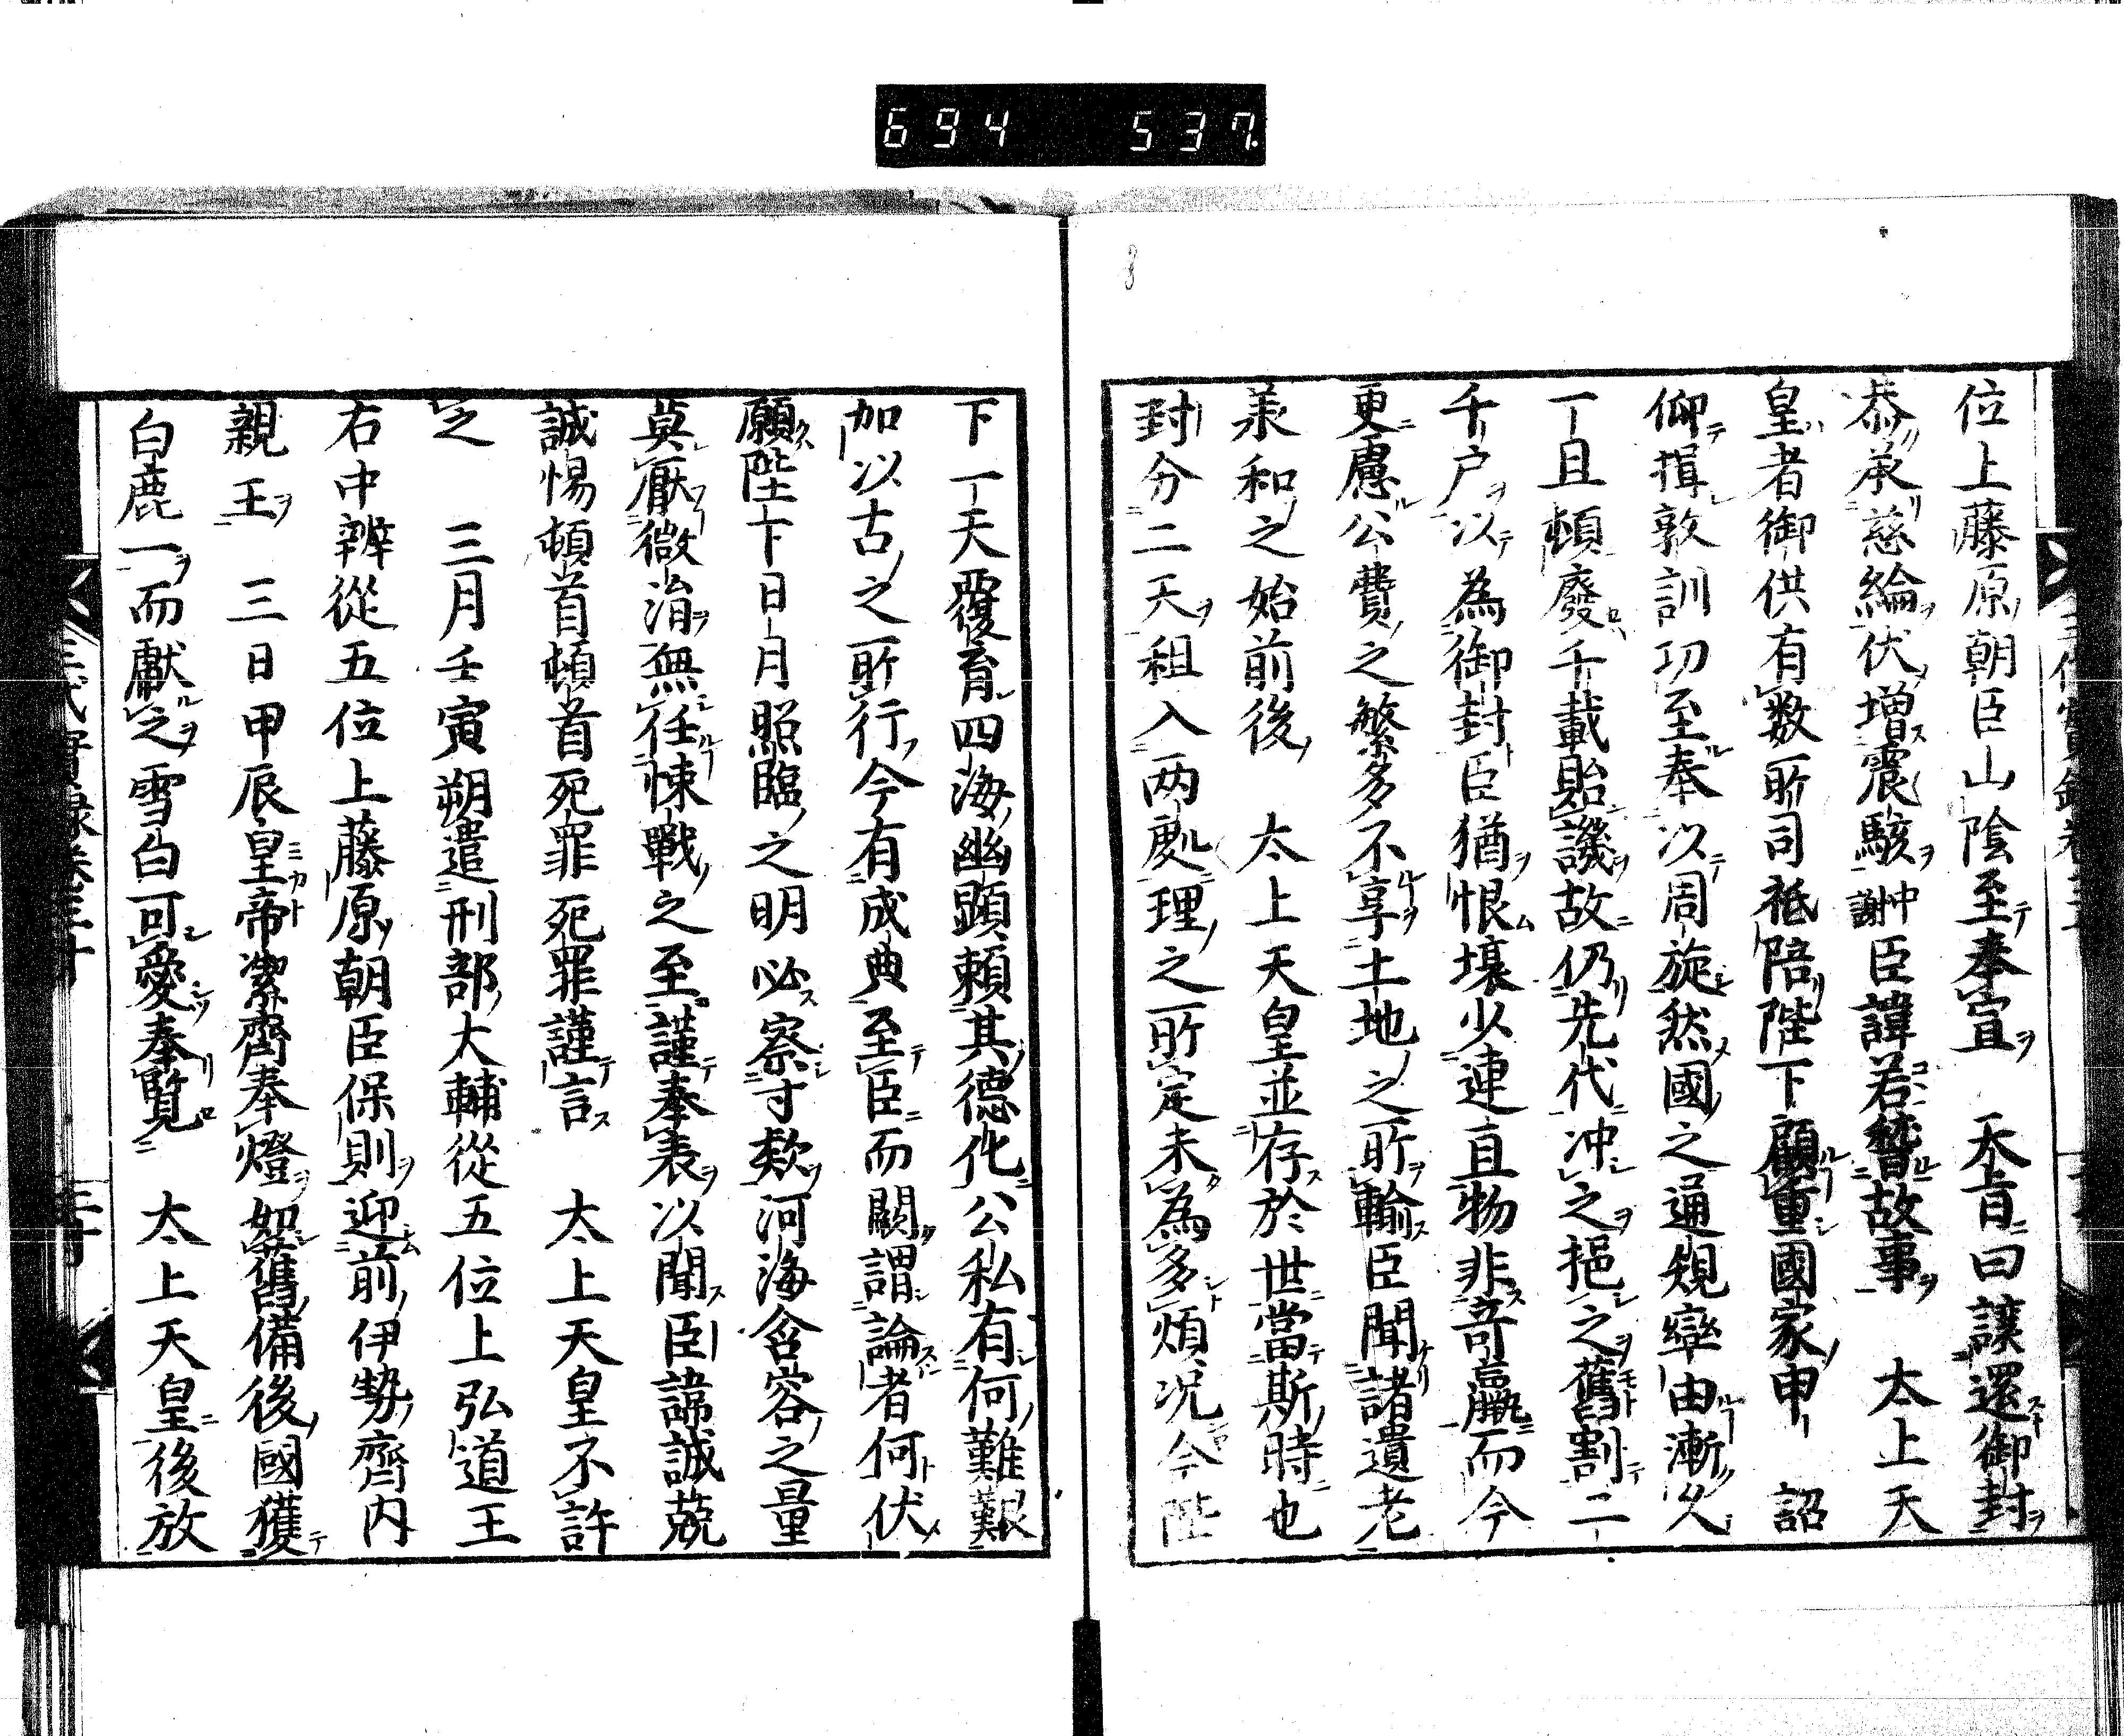 694 537.
位上藤原朝臣山陰至奉宣 天旨曰讓還御封
恭承慈綸伏增震駭中謝臣諱若稽故事 太上天
皇者御供有数所司祗陪陛下顧重國家申 詔
仰揖敦訓功至奉以周旋然國之通規率由漸久
一旦頓廢千載貽譏故仍先代冲之挹之舊割二
千户以為御封臣猶恨壤少連直物非竒羸而今
更慮公費之繁多不享土地之所輸臣聞諸遺老
羕和之始前後 太上天皇並存於世當斯時也
封分二天租入两䖏理之所定未為多煩况今陛
下一天覆育四海幽顕頼其德化公私有何難艱
加以古之所行今有成典至臣而闕謂論者何伏
願陛下日月照臨之明必察寸欵河海含容之量
莫厭微涓無任悚戰之至謹奉表以聞臣諱誠兢
誠惕頓首頓首死罪死罪謹言 太上天皇不許
之 三月壬寅朔遣刑部大輔從五位上弘道王
右中辨從五位上藤原朝臣保則迎前伊勢齊内
親王 三日甲辰皇帝潔齊奉燈如舊備後國獲
白鹿一而獻之雪白可愛奉覧 太上天皇後放
三代實録卷三十